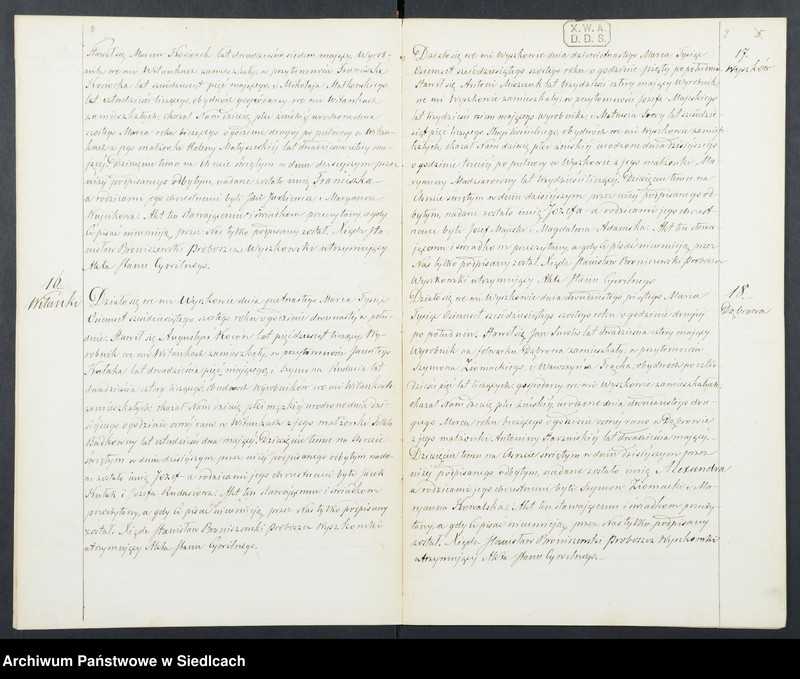 Stawił się Marcin Kosiorek lat dwadzieścia siedem mający, Wyrob-
nik we wsi Witankach zamieszkały, w przytomności Franciszka
lat sześćdziesiąt pięć mającego, i Mikołaja Małkowskiego
lat czterdzieści liczącego, obydwóch gospodarzy we wsi Witankach
zamieszkałych, okazał Nam dziecię płci żeńskiej urodzone dnia
szóstego Marca roku bieżącego o godzinie drugiej po północy w Witan-
kach z jego małżonki Heleny Matysiaków lat dwadzieścia cztery ma-
jącej. Dziecięciu temu na chrzcie świętym w dniu dzisiejszym przez
niżej podpisanego odbytym, nadane zostało imię Franciszka
a rodzicami jego chrzestnemi byli Jan i Maryanna
Wójcikowa. Akt ten stawającemu i świadkom przeczytany, a gdy
ci pisać nieumieją, przez Nas tylko podpisany został. Xiądz Sta-
nisław Broniszewski Proboszcz Wyszkowski utrzymujący
Akta Stanu Cywilnego.
16.
Witanki
Działo się we wsi Wyszkowie dnia piętnastego Marca Tysiąc
Ośmset sześćdziesiątego szóstego roku o godzinie dwunastej w połu-
dnie. Stawił się Augustyn Kocon lat pięćdziesiąt liczący, Wy-
robnik we wsi Witankach zamieszkały, w przytomności Jacentego
lat dwadzieścia pięć mającego, i Szymona Rudasia lat
dwadzieścia cztery liczącego, obudwóch Wyrobników we wsi Witankach
zamieszkałych; okazał Nam dziecię płci męzkiej urodzone dnia dzi-
siejszego o godzinie ósmej rano w Witankach z jego małżonki
lat czterdzieści dwa mającej. Dziecięciu temu na Chrzcie
świętym w dniu dzisiejszym przez niżej podpisanego odbytym nada-
ne zostało imię Józef a rodzicami jego chrzestnemi byli Jacek
i Józefa Rudasiowa. Akt ten stawającemu i świadkom
przeczytany, a gdy ci pisać nieumieją, przez Nas tylko podpisany
został. Xiądz Stanisław Broniszewski Proboszcz Wyszkowski
utrzymujący Akta Stanu Cywilnego.
X.W.A.
D.D.S.
17.
Wyszków
Działo się we wsi Wyszkowie dnia dziewiętnastego Marca Tysiąc
Ośmset sześćdziesiątego szóstego roku o godzinie piątej po południu.
Stawił się Antoni lat trzydzieści cztery mający Wyrobnik
we wsi Wyszkowie zamieszkały, w przytomności Józefa Majskiego
lat trzydzieści ośm mającego Wyrobnika, i Mateusza lat sześćdzie-
siąt pięć liczącego obydwóch we wsi Wyszkowie zamiesz-
kałych; okazał Nam dziecię płci żeńskiej urodzone dnia dzisiejszego
o godzinie trzeciej po północy w Wyszkowie z jego małżonki Ma-
ryanny lat trzydzieści liczącej. Dziecięciu temu na
Chrzcie świętym w dniu dzisiejszym przez niżej podpisanego od-
bytym, nadane zostało imię Józefa a rodzicami jego chrzest-
nemi byli Józef Majski i Magdalena Adamska. Akt ten stawa-
jącemu i świadkom przeczytany, a gdy ci pisać nieumieją, przez
Nas tylko podpisany został. Xiądz Stanisław Broniszewski Proboszcz
Wyszkowski utrzymujący Akta Stanu Cywilnego
18.
Dąbrowa
Działo się we wsi Wyszkowie dnia dwudziestego piątego Marca
Tysiąc Ośmset sześćdziesiątego szóstego roku o godzinie drugiej
po południu. Stawił się Jan Smolis lat dwadzieścia cztery mający
Wyrobnik na folwarku Dąbrowa zamieszkały, w przytomności
Szymona Ziomackiego, i Wawrzyńca obydwóch po czter-
dzieści pięć lat liczących, gospodarzy we wsi Wyszkowie zamieszkałych;
okazał Nam dziecię płci żeńskiej, urodzone dnia dwudziestego dru-
giego Marca roku bieżącego o godzinie ósmej rano w Dąbrowie
z jego małżonki Antoniny lat dwadzieścia mającej.
Dziecięciu temu na Chrzcie świętym w dniu dzisiejszym przez
niżej podpisanego odbytym, nadane zostało imię Alexandra
a rodzicami jego chrzestnemi byli Szymon Ziomacki i Ma-
ryanna Kowalska. Akt ten stawającemu i świadkom przeczy-
tany, a gdy ci pisać nieumieją, przez Nas tylko podpisany
został. Xiądz Stanisław Broniszewski Proboszcz Wyszkowski
utrzymujący Akta Stanu Cywilnego.
Archiwum Państwowe w Siedlcach